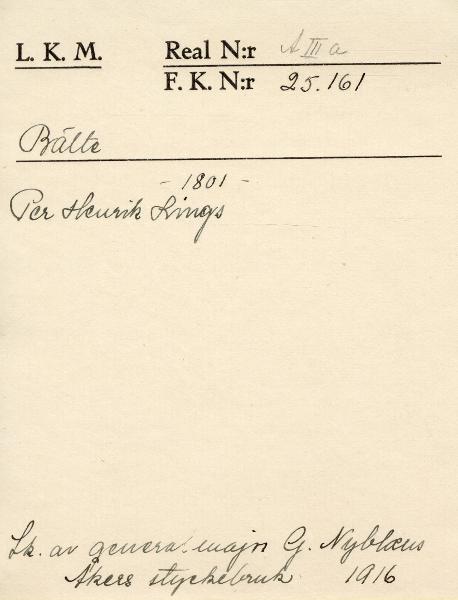 L. K. M. Real N:r A III a
F. K. N:r 25.161
Bälte
- 1801 -
Per Henrik Lings
Sk. av general.majn G. Nyblæus
Åkers styckebruk 1916